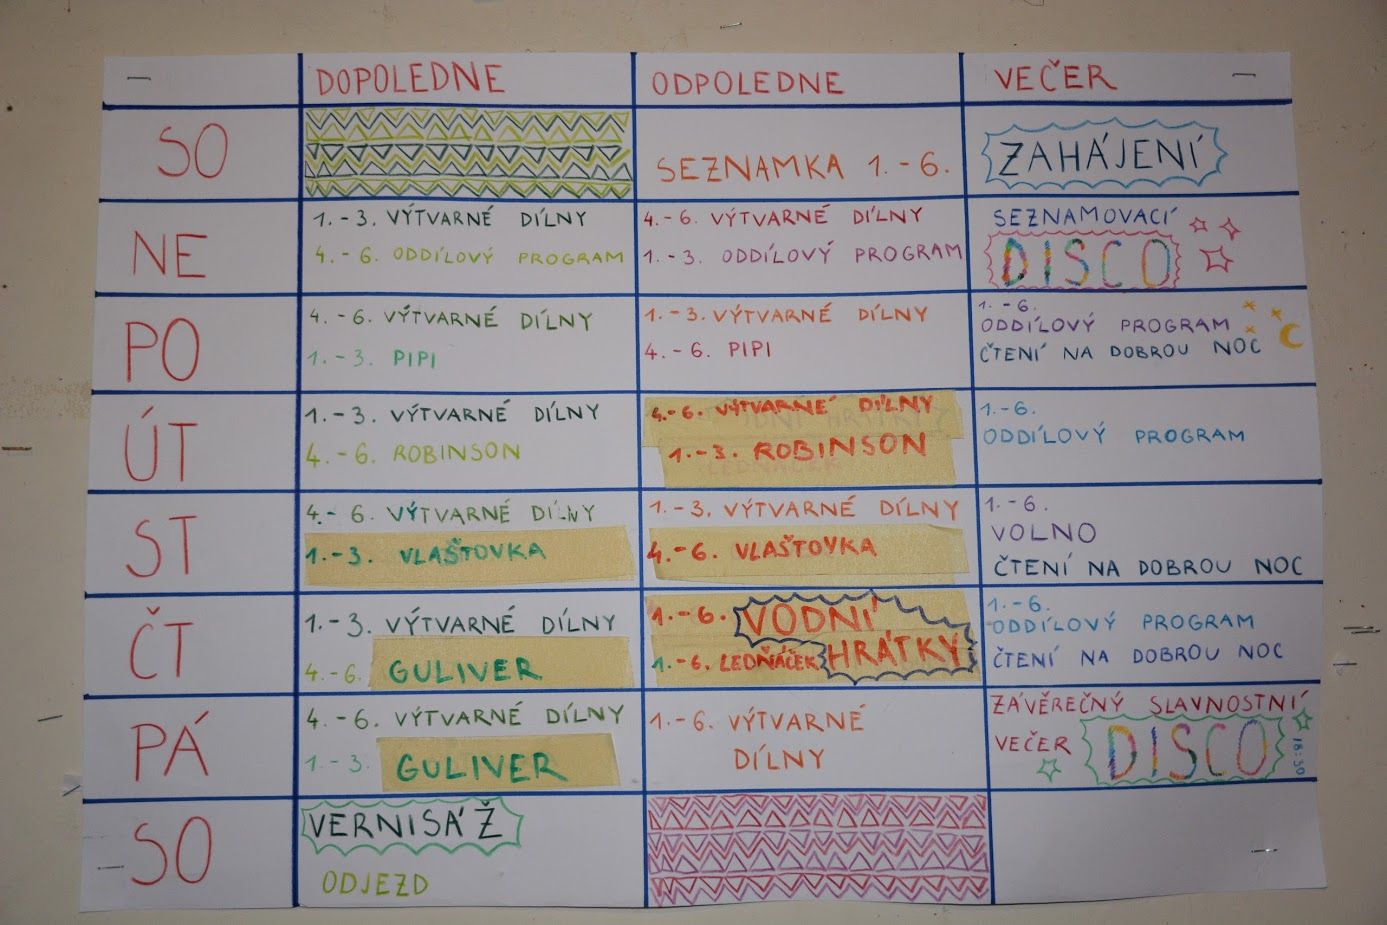 DOPOLEDNE ODPOLEDNE VEČER
SO
SEZNAMKA 1.-6.
ZAHÁJENÍ
NE
1.-3. VÝTVARNÉ DÍLNY
4.-6. ODDÍLOVÝ PROGRAM
4.-6. VÝTVARNÉ DÍLNY
1.-3. ODDÍLOVÝ PROGRAM
SEZNAMOVACÍ
DISCO
PO
4.-6. VÝTVARNÉ DÍLNY
1.-3. PIPI
1.-3. VÝTVARNÉ DÍLNY
4.-6. PIPI
1.-6.
ODDÍLOVÝ PROGRAM
ČTENÍ NA DOBROU NOC
ÚT
1.-3. VÝTVARNÉ DÍLNY
4.-6. ROBINSON
4.-6. VÝTVARNÉ DÍLNY
1.-3. ROBINSON
1.-6.
ODDÍLOVÝ PROGRAM
ST
4.-6. VÝTVARNÉ DÍLNY
1.-3. VLAŠTOVKA
1.-3. VÝTVARNÉ DÍLNY
4.-6. VLAŠTOVKA
1.-6.
VOLNO
ČTENÍ NA DOBROU NOC
ČT
1.-3. VÝTVARNÉ DÍLNY
4.-6. GULIVER
1.-6. VODNÍ
HRÁTKY
1.-6. LEDŇÁČEK
1.-6.
ODDÍLOVÝ PROGRAM
ČTENÍ NA DOBROU NOC
PÁ
4.-6. VÝTVARNÉ DÍLNY
1.-3. GULIVER
1.-6. VÝTVARNÉ
DÍLNY
ZÁVĚREČNÝ SLAVNOSTNÍ
VEČER DISCO 18:30
SO
VERNISÁŽ
ODJEZD